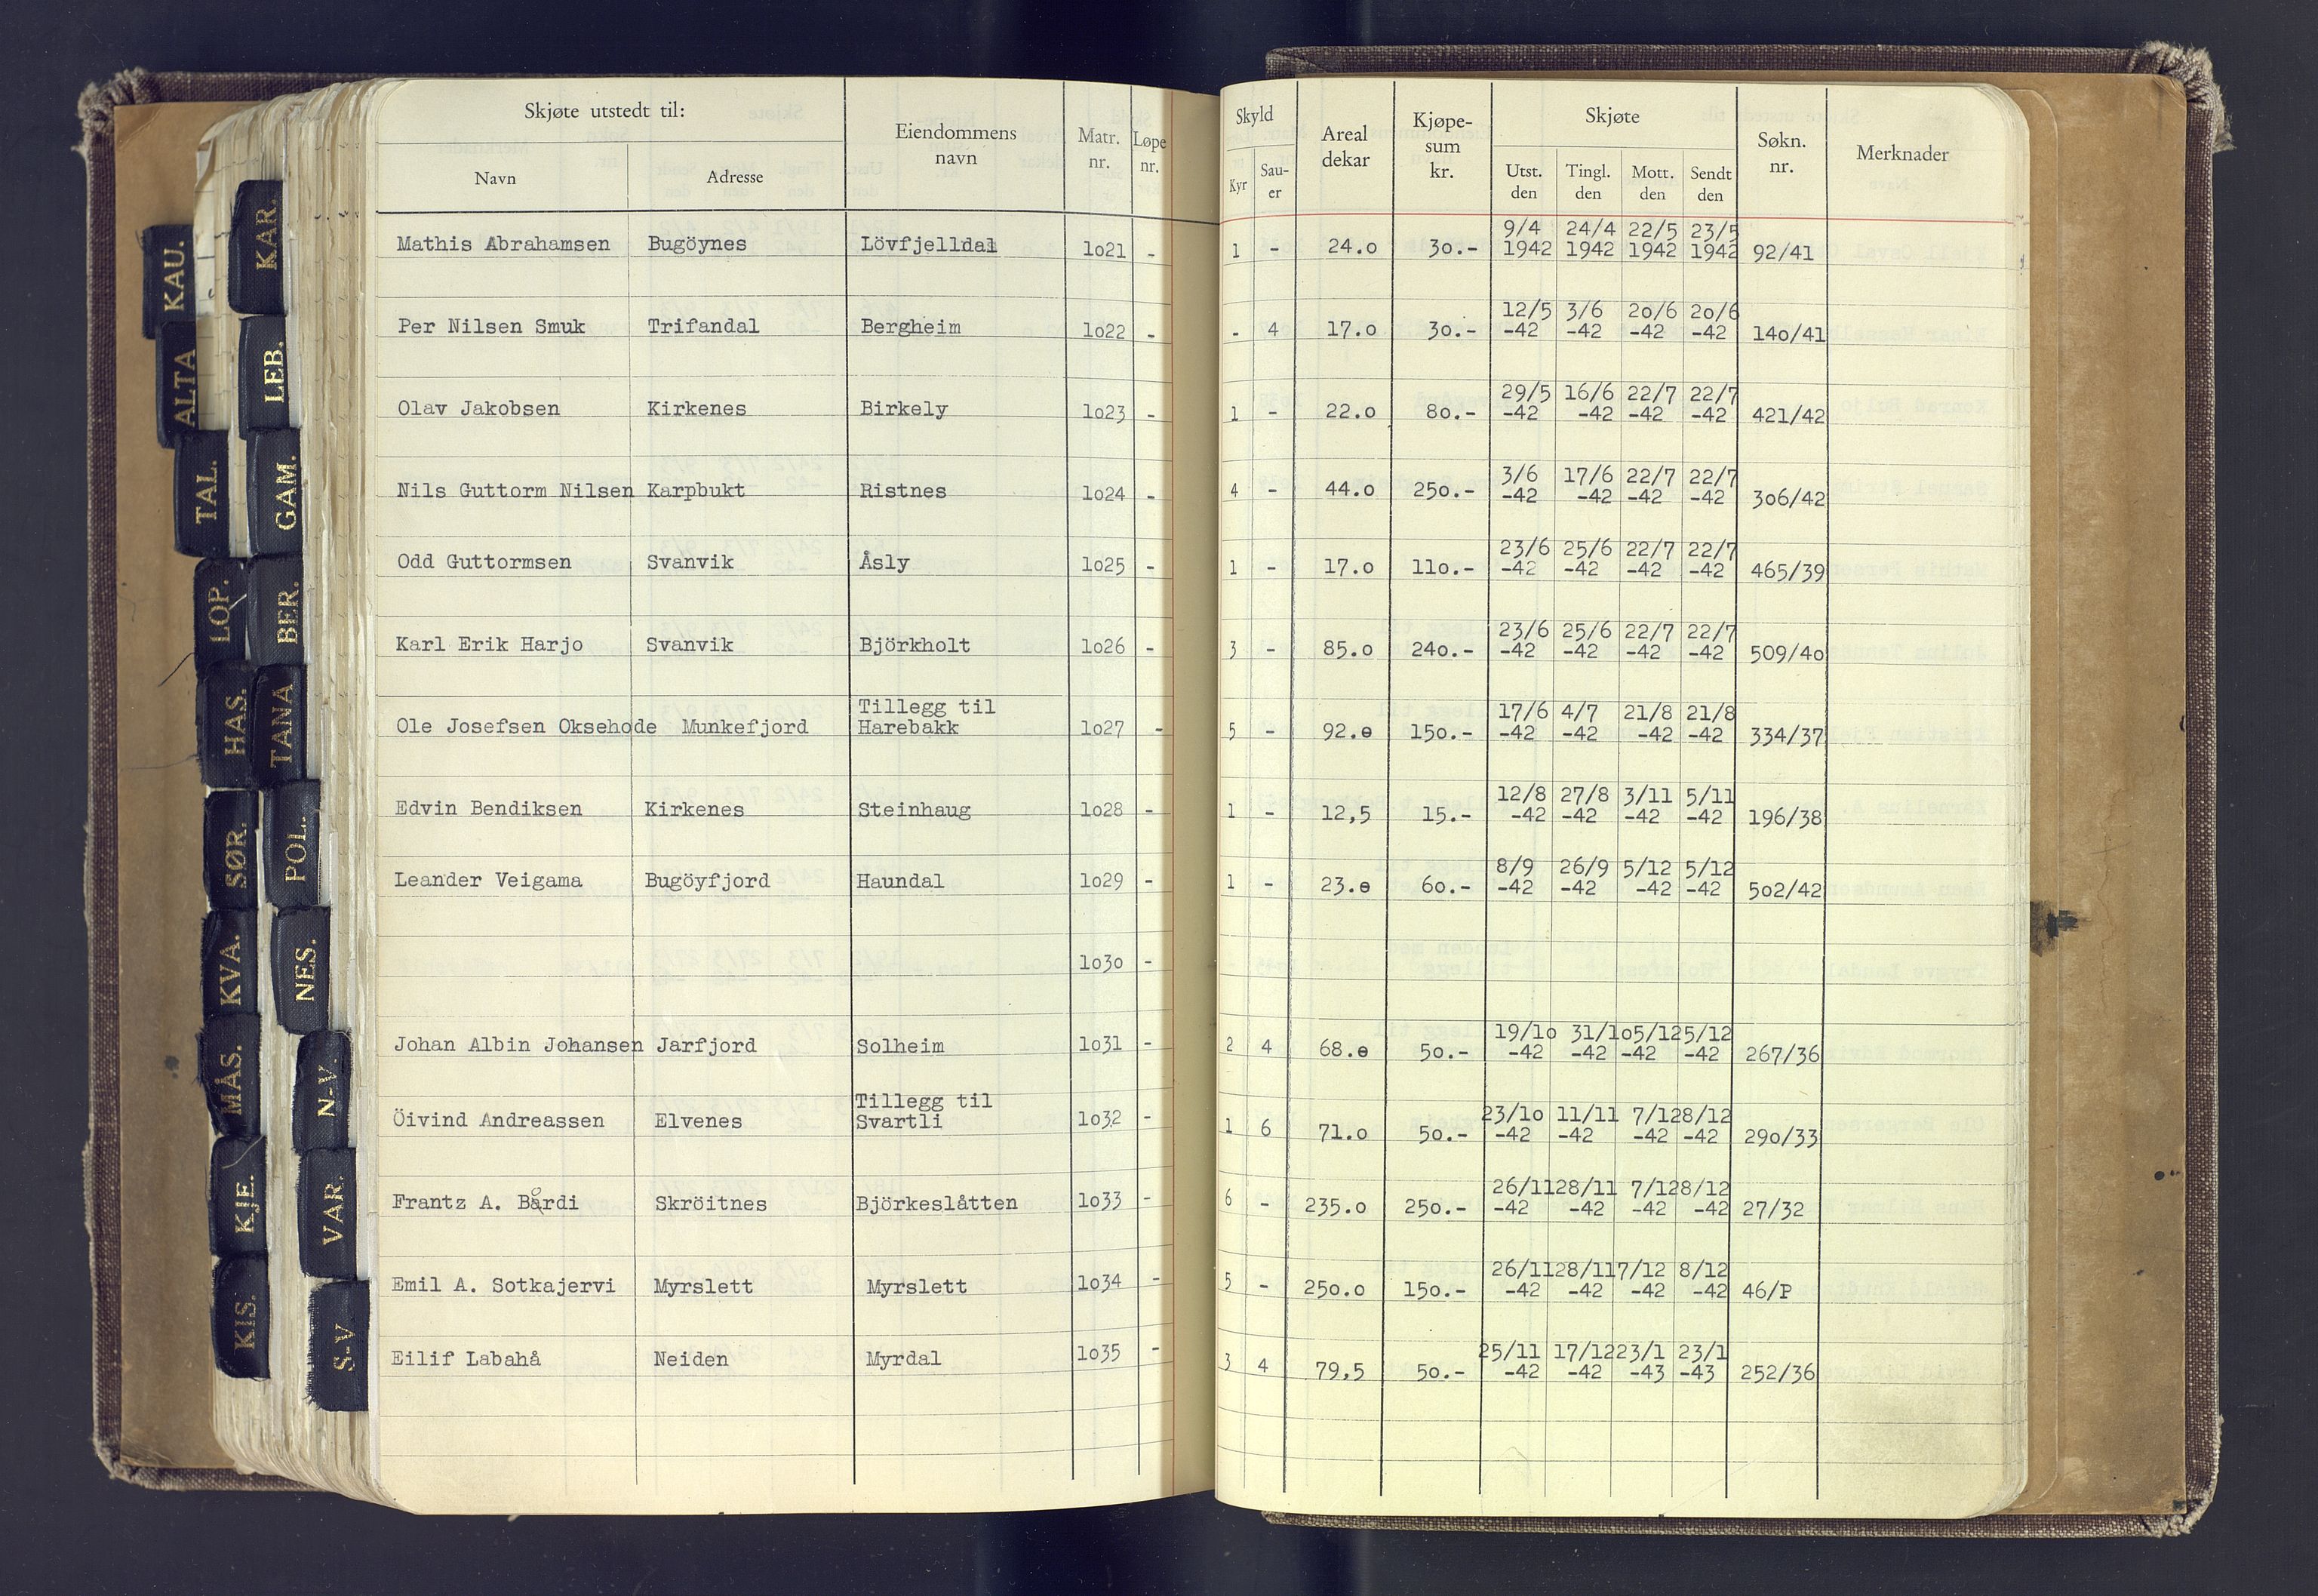 KAU.
ALTA
TAL.
LOP.
HAS.
SØR.
KVA.
MÅS.
KJE.
KIS.
KAR.
LEB.
GAM.
BER.
TANA
POL.
NES.
N-V.
VAR.
S-V.
Skjøte utstedt til:
Navn
Adresse
Eiendommens
navn
Matr.
nr.
Løpe
nr.
Skyld
Kyr
Sau-
er
Areal
dekar
Kjøpe-
sum
kr.
Skjøte
Utst.
den
Tingl.
den
Mott.
den
Sendt
den
Søkn.
nr.
Merknader
9/4 24/4 22/5 23/5
Mathis Abrahamsen Bugöynes Lövfjelldal 1o21 - 1 - 24.o 3o.- 1942 1942 1942 1942 92/41
12/5 3/6 2o/6 2o/6
Per Nilsen Smuk Trifandal Bergheim 1o22 - - 4 17.o 3o.- -42 -42 -42 -42 14o/41
29/5 16/6 22/7 22/7
Olav Jakobsen Kirkenes Birkely 1o23 - 1 - 22.o 8o.- -42 -42 -42 -42 421/42
3/6 17/6 22/7 22/7
Nils Guttorm Nilsen Karpbukt Ristnes 1o24 - 4 - 44.o 25o.- -42 -42 -42 -42 3o6/42
23/6 25/6 22/7 22/7
Odd Guttormsen Svanvik Åsly 1o25 - 1 - 17.o 11o.- -42 -42 -42 -42 465/39
23/6 25/6 22/7 22/7
Karl Erik Harjo Svanvik Björkholt 1o26 - 3 - 85.o 24o.- -42 -42 -42 -42 5o9/4o
Tillegg til 17/6 4/7 21/8 21/8
Ole Josefsen Oksehode Munkefjord Harebakk 1o27 - 5 - 92.o 15o.- -42 -42 -42 -42 334/37
12/8 27/8 3/11 5/11
Edvin Bendiksen Kirkenes Steinhaug 1o28 - 1 - 12,5 15.- -42 -42 -42 -42 196/38
8/9 26/9 5/12 5/12
Leander Veigama Bugöyfjord Haundal 1o29 - 1 - 23.o 6o.- -42 -42 -42 -42 5o2/42
1o3o -
19/1o 31/1o5/125/12
Johan Albin Johansen Jarfjord Solheim 1o31 - 2 4 68.o 5o.- -42 -42 -42 -42 267/36
Tillegg til 23/1o 11/11 7/128/12
Öivind Andreassen Elvenes Svartli 1o32 - 1 6 71.o 5o.- -42 -42 -42 -42 29o/33
26/1128/11 7/128/12
Frantz A. Bårdi Skröitnes Björkeslåtten 1o33 - 6 - 235.o 25o.- -42 -42 -42 -42 27/32
26/1128/117/12 8/12
Emil A. Sotkajervi Myrslett Myrslett 1o34 - 5 - 25o.o 15o.- -42 -42 -42 -42 46/P
25/11 17/1223/1 23/1
Eilif Labahå Neiden Myrdal 1o35 - 3 4 79,5 5o.- -42 -42 -43 -43 252/36